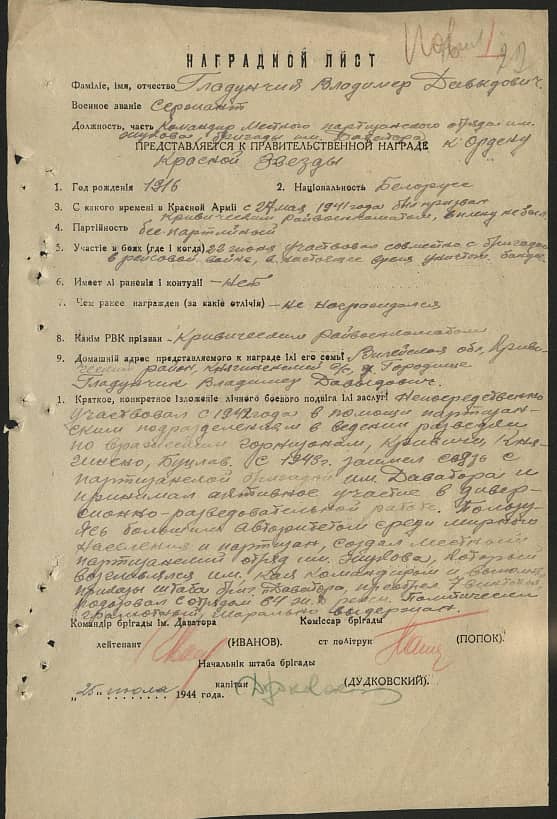 НАГРАДНОЙ ЛИСТ
Фаміліе, імя, отчество Гладунчик Владимер Давыдович.
Военное званіе Сержант
Должность, часть Командир Местного партизанского отряда им.
Жукова бригады им. Даватора
ПРЕДСТАВЛЯЕТСЯ К ПРАВИТЕЛЬСТВЕННОЙ НАГРАДЕ к Ордену
Красной Звезды
1. Год рожденія 1916 2. Національность Белорусс
3. С какого времені в Красной Арміі с 24 мая 1941 года был призван
Кривическим райвоенкоматом, в плену не был,
4. Партійность беспартийный
5. Участіе в боях (где і когда) 22 июня участвовал совместно с бригадой
в рельсовой войне, в настоящее время
6. Имеет лі раненія і контузіі - Нет
7. Чем ранее награжден (за какіе отлічія) - не награждался
8. Какім РВК прізван - Кривическим райвоенкоматом
9. Домашній адрес представляемого к награде ілі его семьі Вилейская обл, Криви-
ческий район, Княгининский с/с, д. Городище
Гладунчик Владимер Давыдович.
1. Краткое, конкретное ізложеніе лічного боевого подвіга ілі заслуг: Непосредственно
участвовал с 1942 года в помощи партизан-
ским подразделениям в ведении разведки
по вражеским горнизонам, Кривичи, Кня-
гинено, Буцлав, С 1943 г. заимел связь с
партизанской бригадой им. Даватора и
принимал активное участие в дивер-
сионно-разведовательной работе. Пользу
ясь большим авторитетом среди мирного
населения и партизан, создал местный
партизанский отряд им. Жукова, который
возглавлялся им. Как командиром и выполнял
приказы штаба бриг. Даватора,
подорвал с отрядом 84 Политически
грамотный, морально выдержан.
Командір брігады ім. Даватора Коміссар брігады
лейтенант (ИВАНОВ). ст політрук (ПОПОК).
Начальнік штаба брігады
капітан (ДУДКОВСКИЙ).
„25" июля 1944 года.